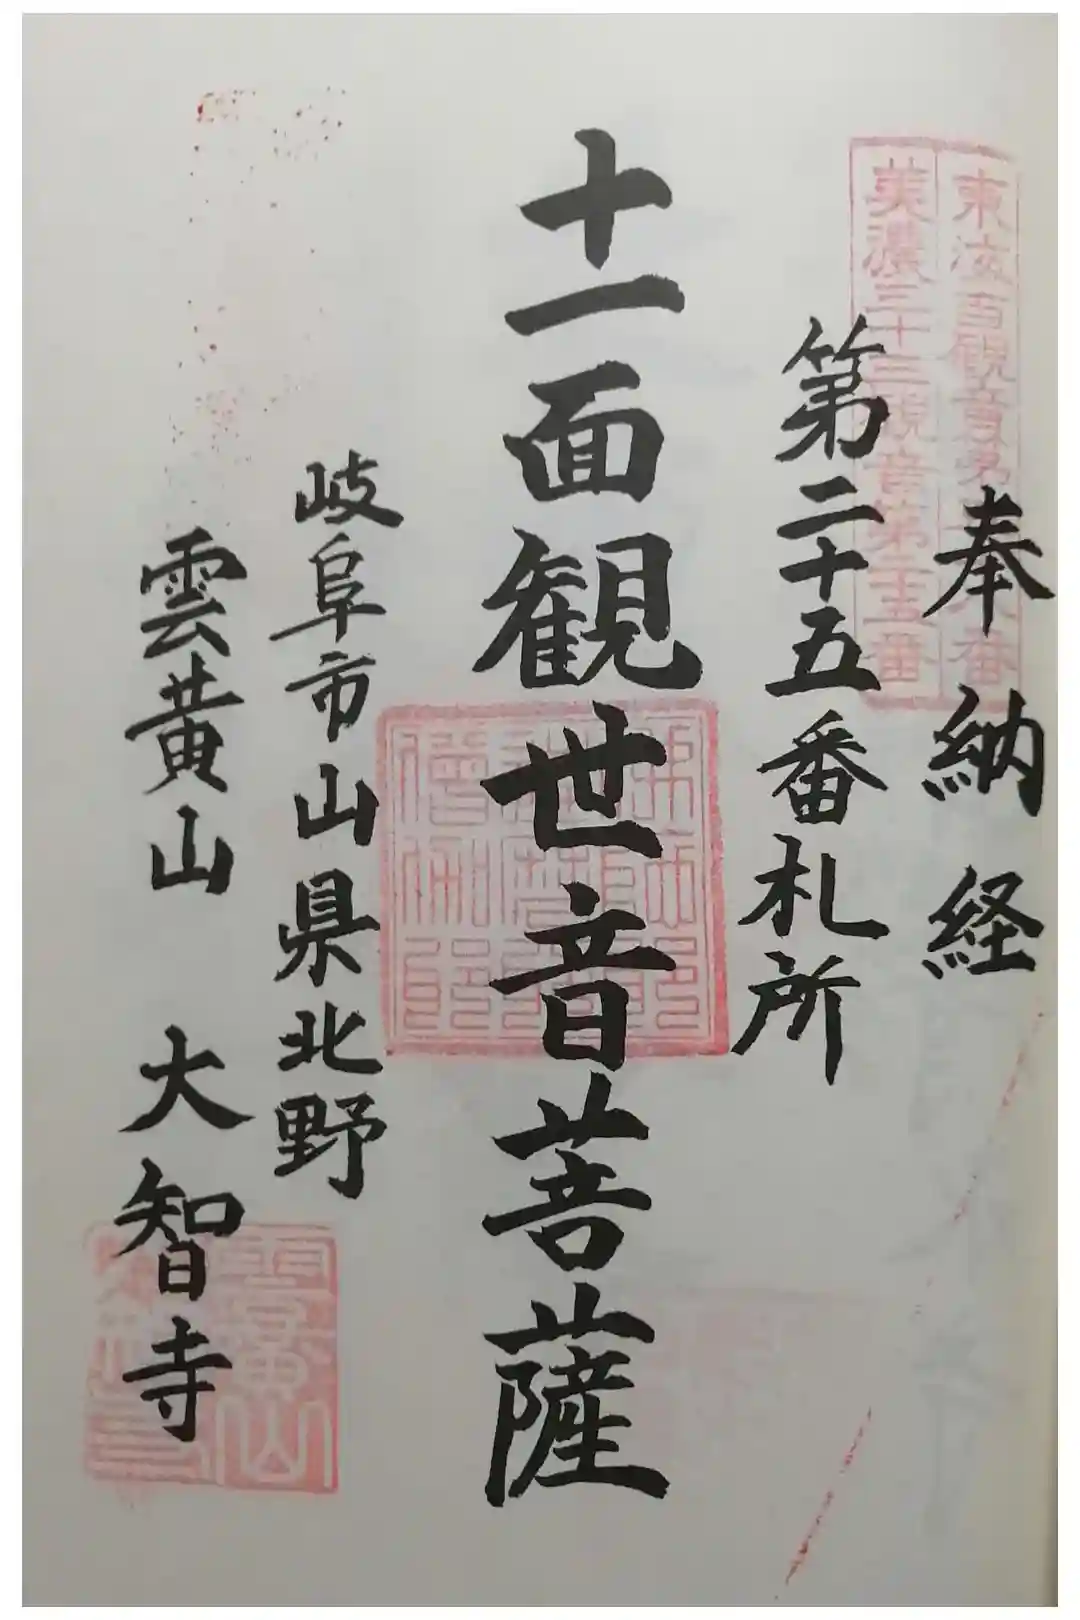 奉納経
第二十五番札所
美濃三十三観音第二十五番
十一面観世音菩薩
岐阜市山県北野
雲黄山 大智寺
雲黄山